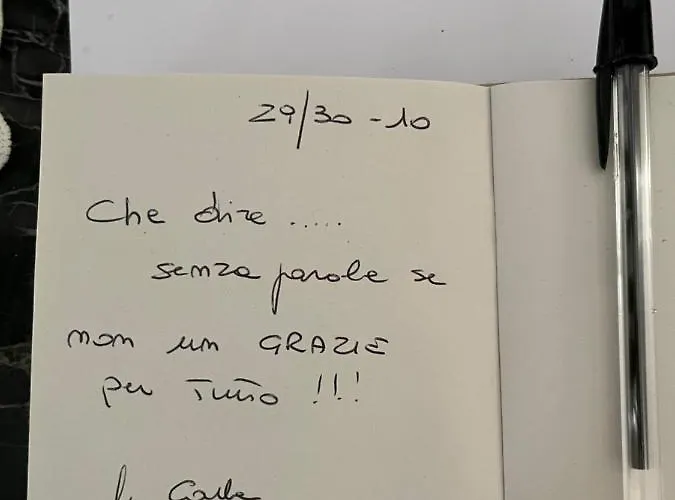 29/30 - 10
Che dire .....
senza parole se
non un GRAZIE
per Tutto !!!